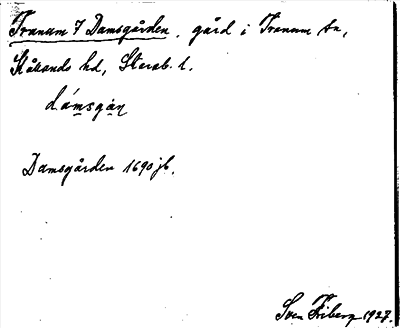 Tranum 7 Damsgården, gård i Tranum sn,
Kållands hd, Skarab. l.
dámsgàn
Damsgården 1690 jb.
Sven Friberg 1927.